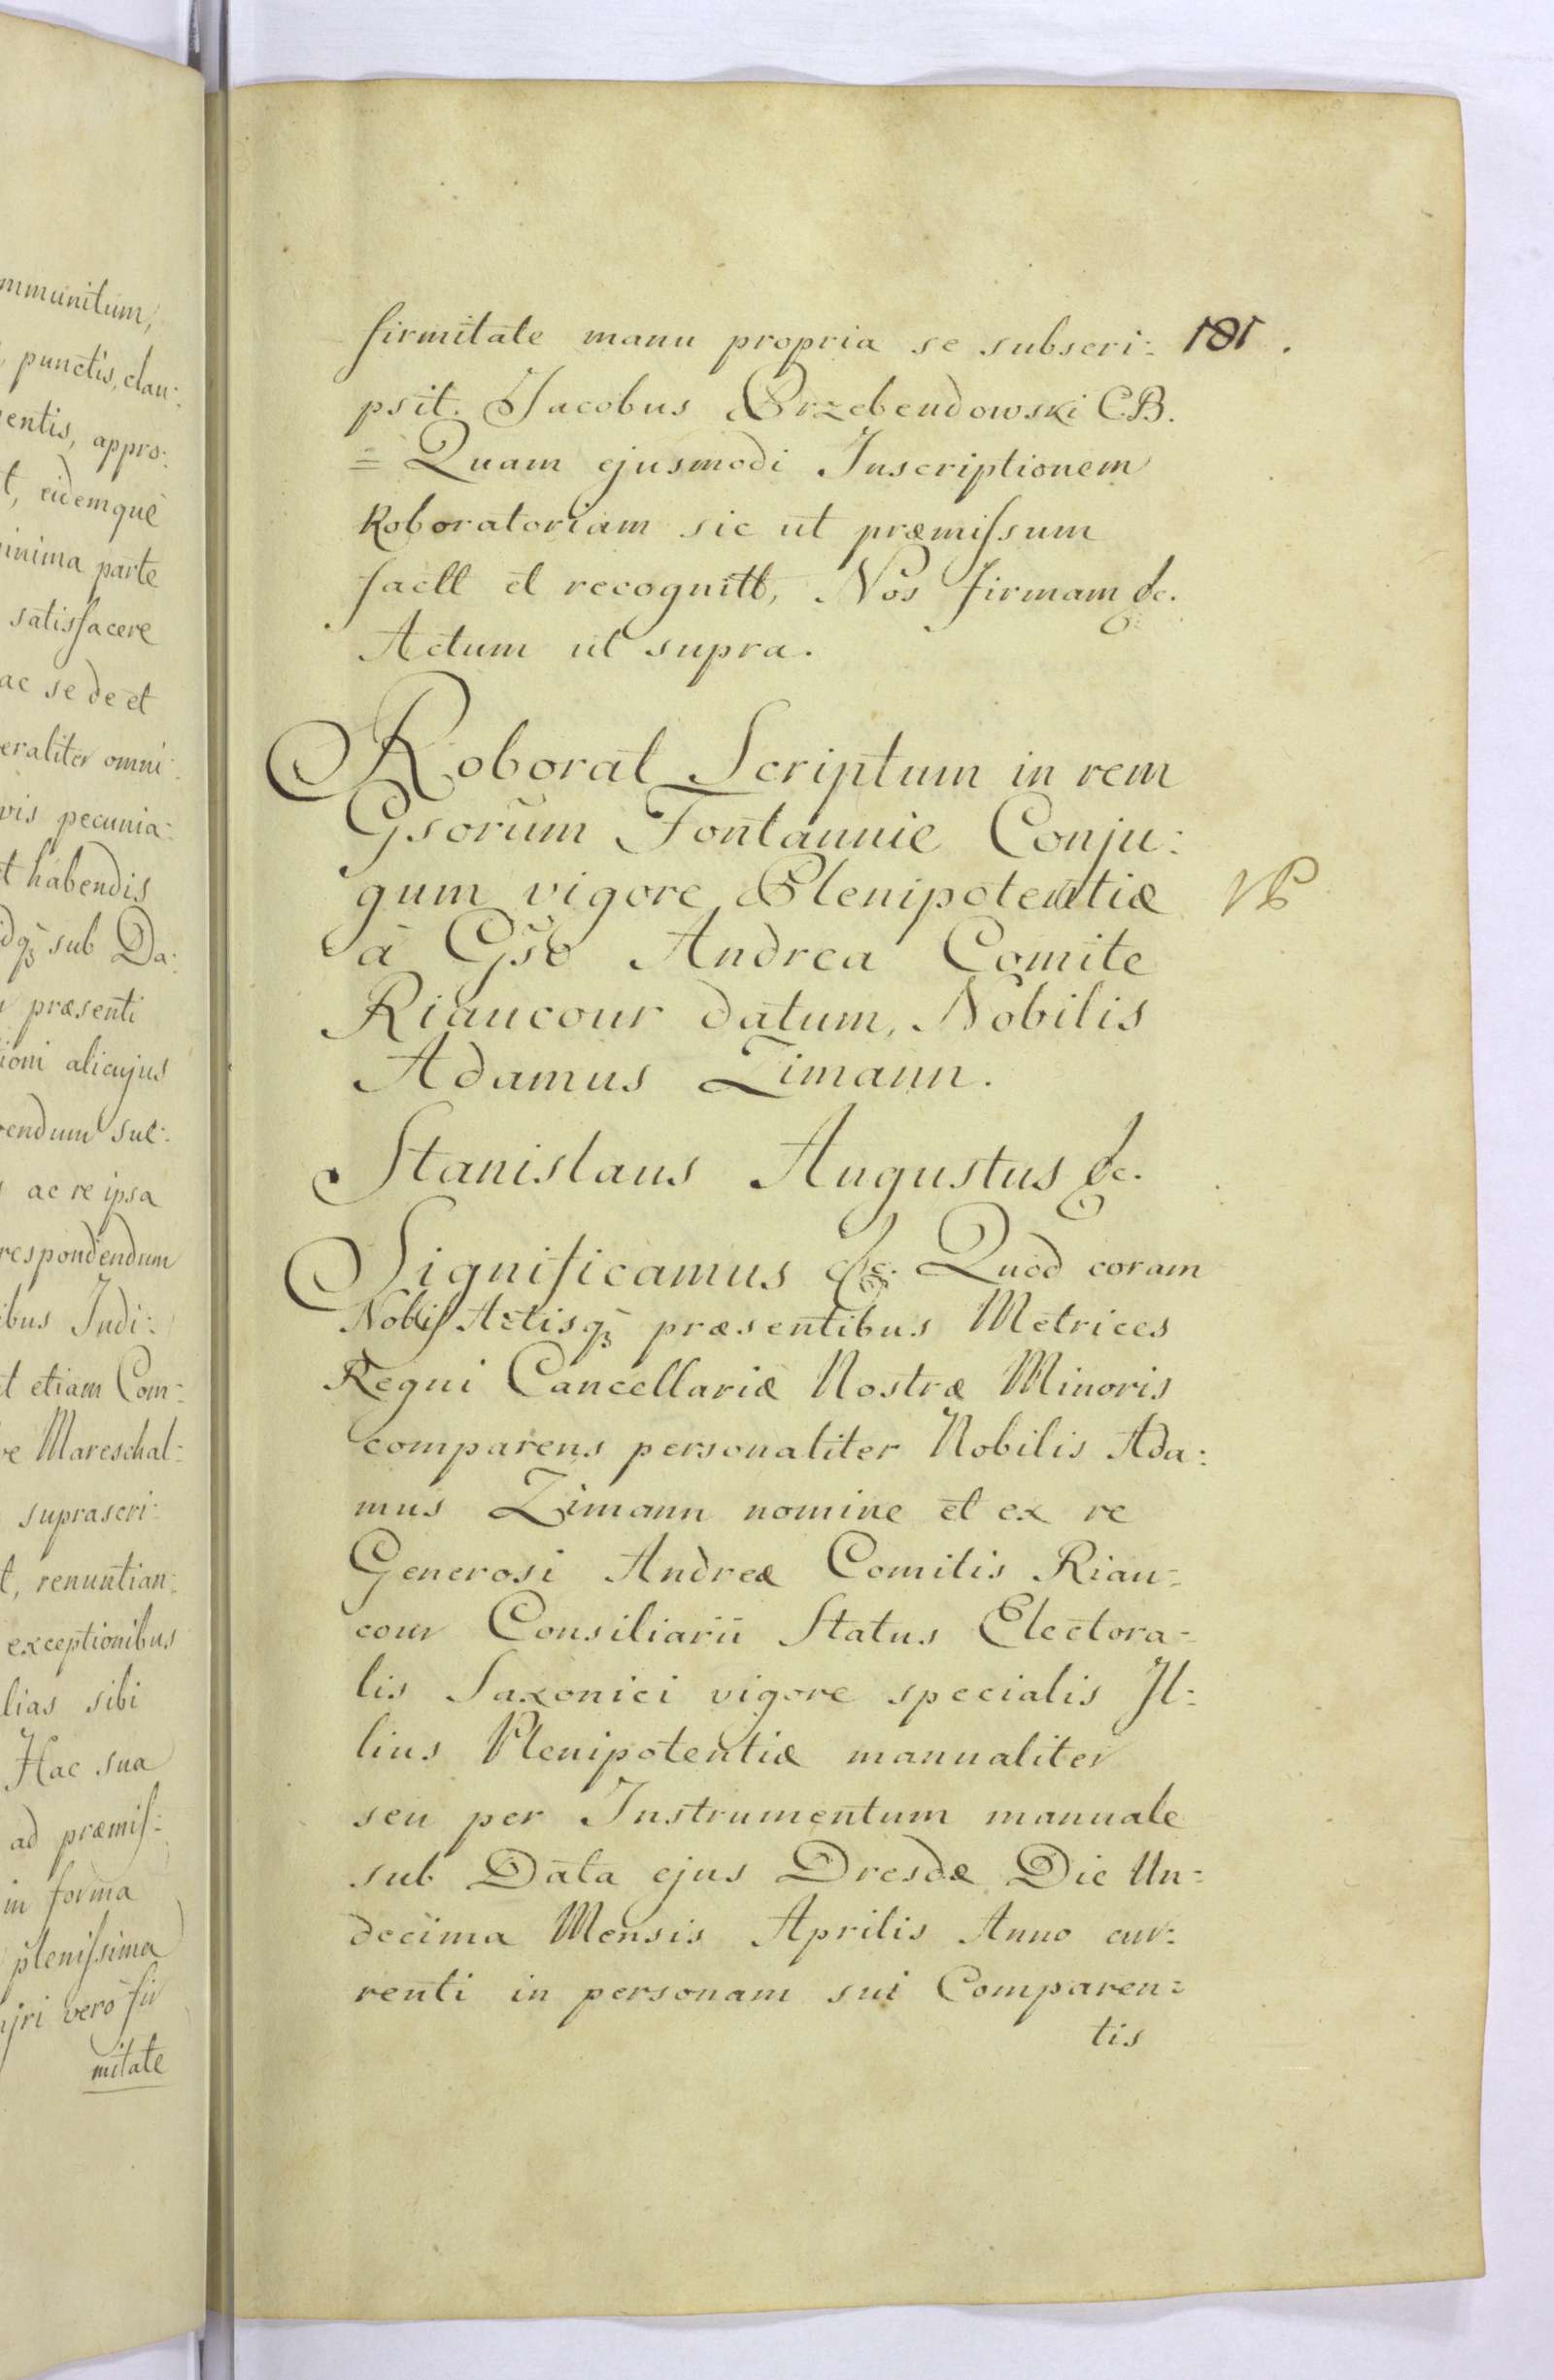 mmunitum,
punctis, clau:
entis, appro:
t, eidemque
inima parte
satisfacere
ac se de et
eraliter omni:
vis pecunia:
t habendis
dq̃ sub Da:
præsenti
ioni alicujus
endum sul:
ac re ipsa
respondendum
ibus Judi:
t etiam Com:
re Mareschal:
suprascri:
t, renuntian:
exceptionibus
lias sibi
Hac sua
ad præmis:
in forma
plenissima
ijri vero fir
mitate
firmitate manu propria se subscri: 181.
psit. Jacobus Przebendowski C.B.
= Quam ejusmodi Inscriptionem
Roboratoriam sic ut præmissum
factt et recognitt, Nos firmam &c.
Actum ut supra.
Roborat Scriptum in rem
Gsorum Fontannie Conju:
gum vigore Plenipotentiæ
à Gso Andrea Comite
Riaucour datum, Nobilis
Adamus Zimann.
Stanislaus Augustus &c.
Significamus &c. Quod coram
Nobis Actisq̃ præsentibus Metrices
Regni Cancellariæ Nostræ Minoris
comparens personaliter Nobilis Ada:
mus Zimann nomine et ex re
Generosi Andreæ Comitis Riau:
cour Consiliarii Status Electora:
lis Saxonici vigore specialis Il:
lius Plenipotentiæ manualiter
seu per Instrumentum manuale
sub Data ejus Dresdæ Die Un:
decima Mensis Aprilis Anno cur:
renti in personam sui Comparen:
tis